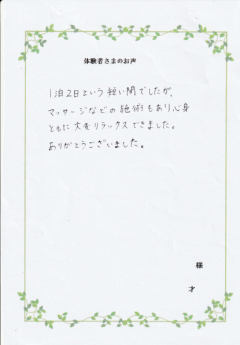 体験者さまのお声
1泊2日という短い間でしたが、
マッサージなどの施術もあり心身
ともに大変リラックスできました。
ありがとうございました。
様
才